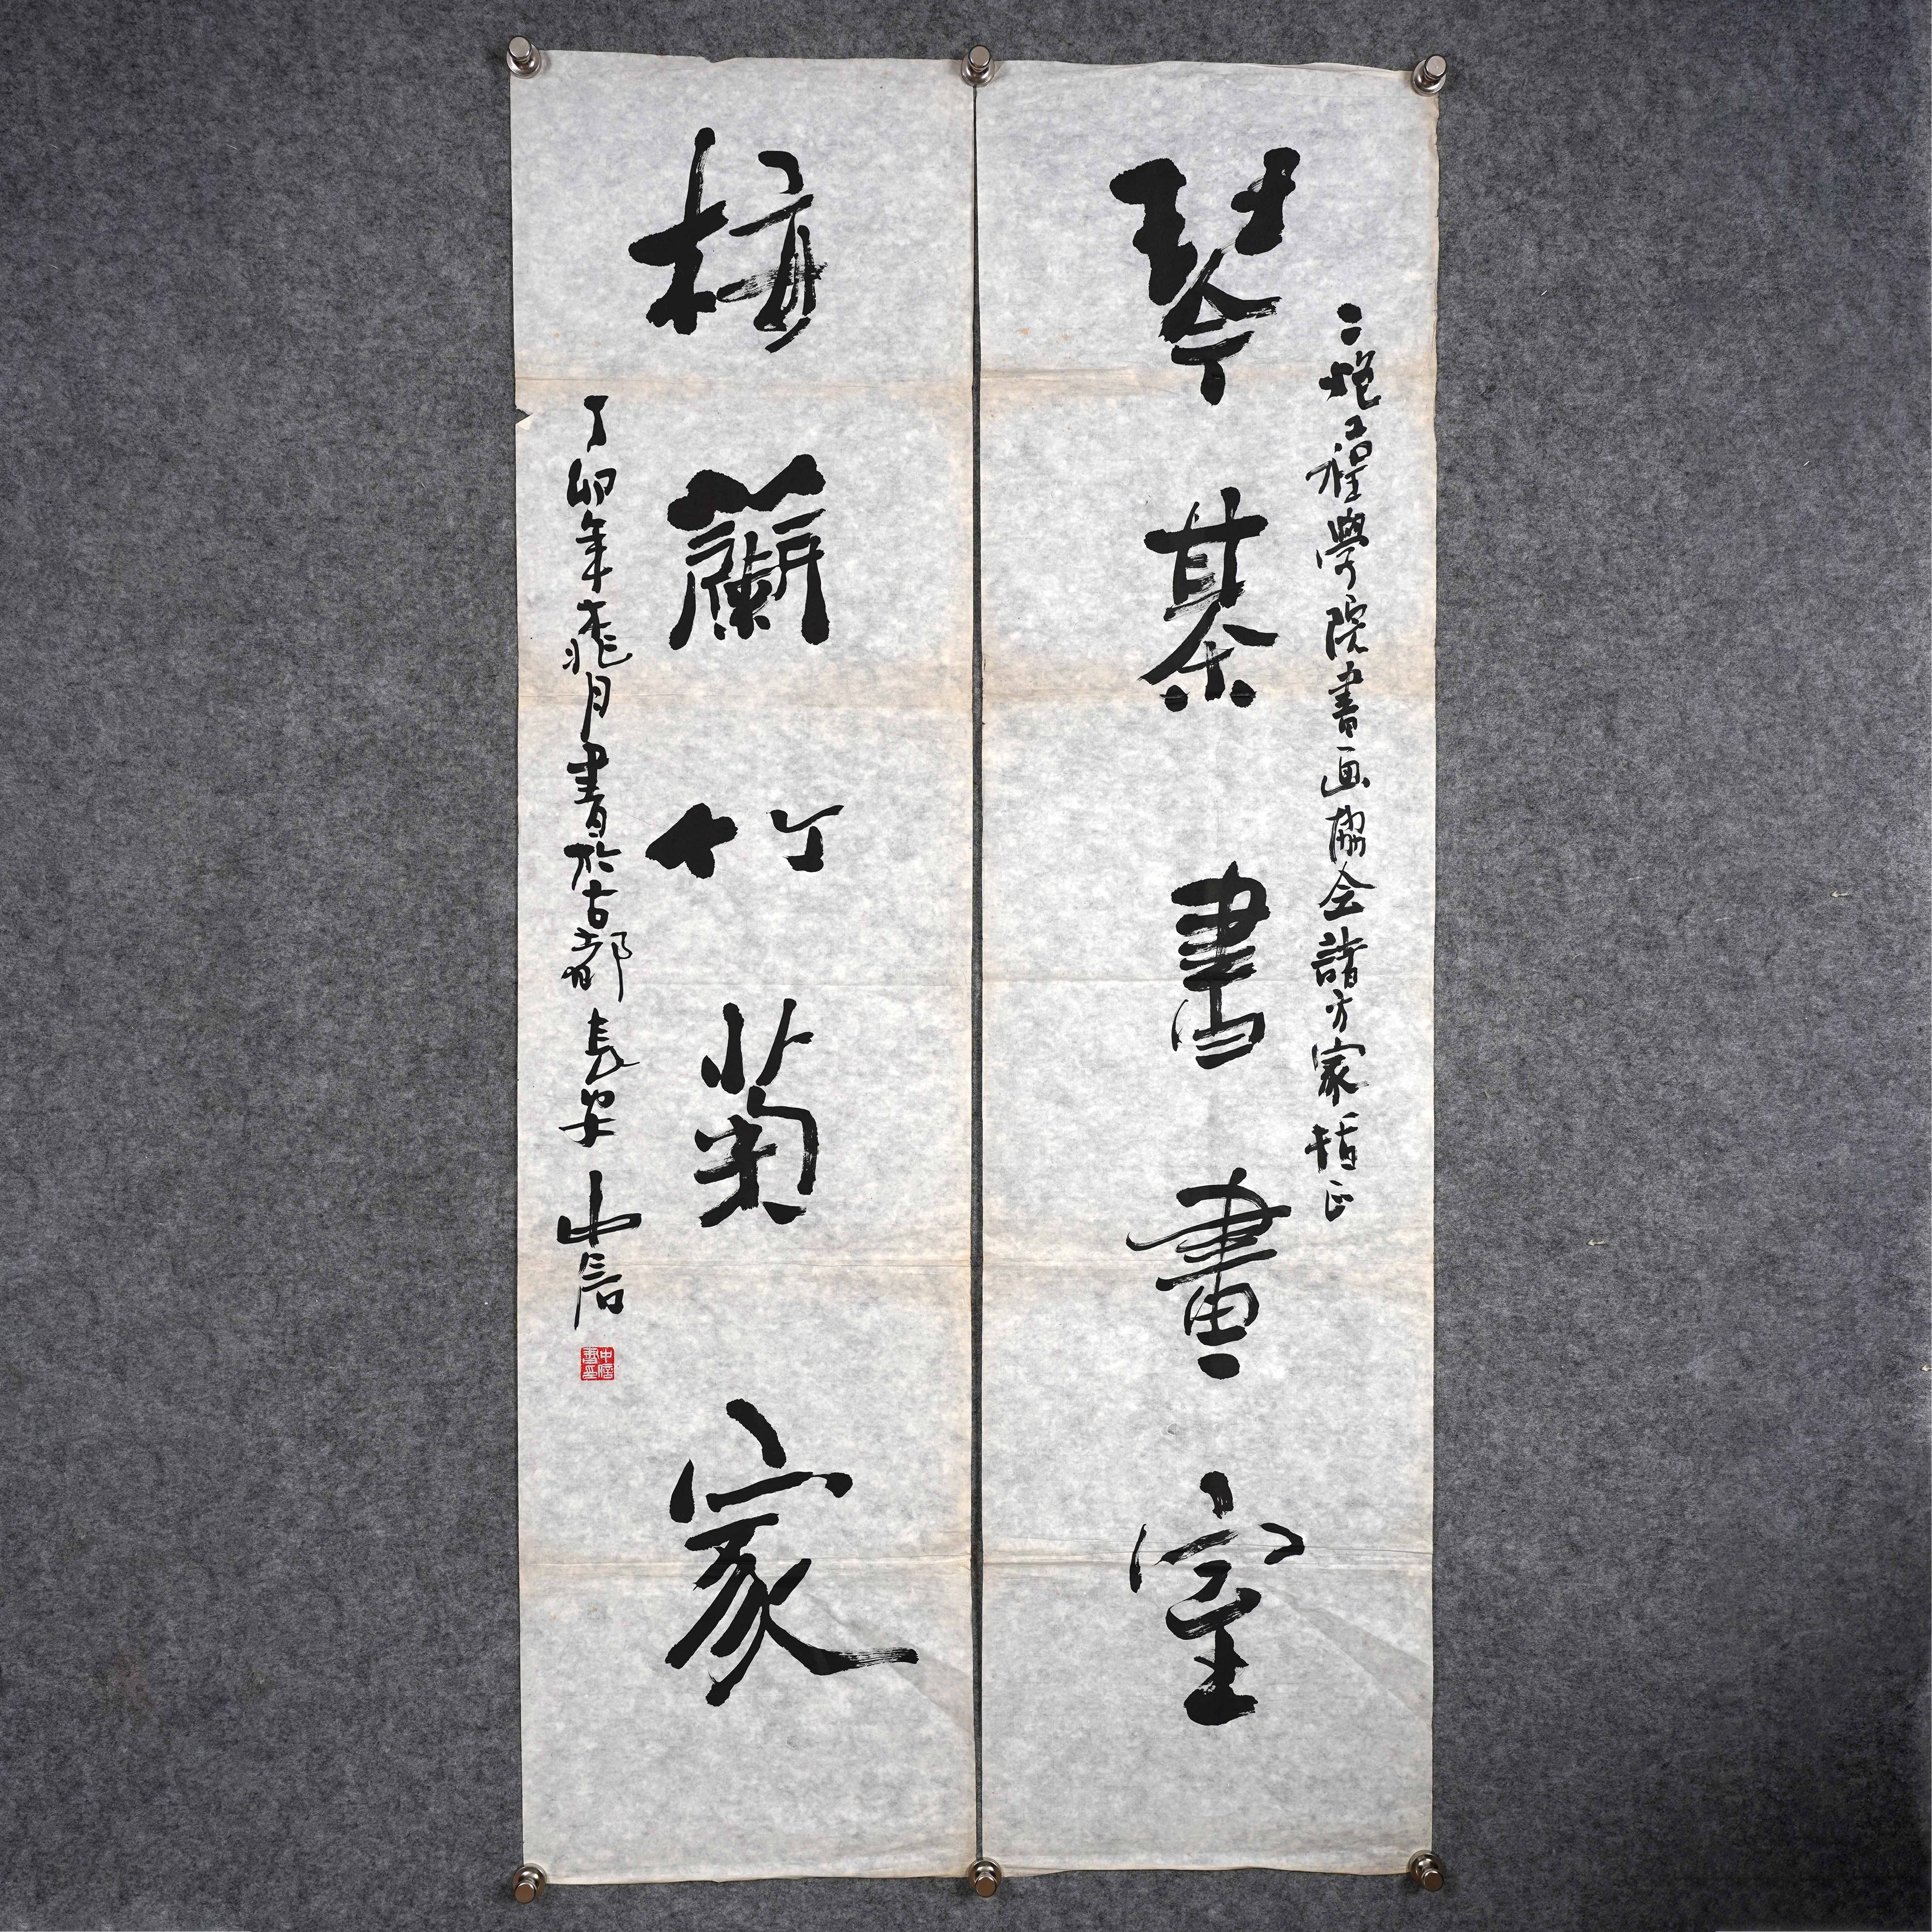 琴棊書畫室
二炮工程學院書画協会諸方家指正
梅蘭竹菊家
丁卯年桃月書於古都長安
中信